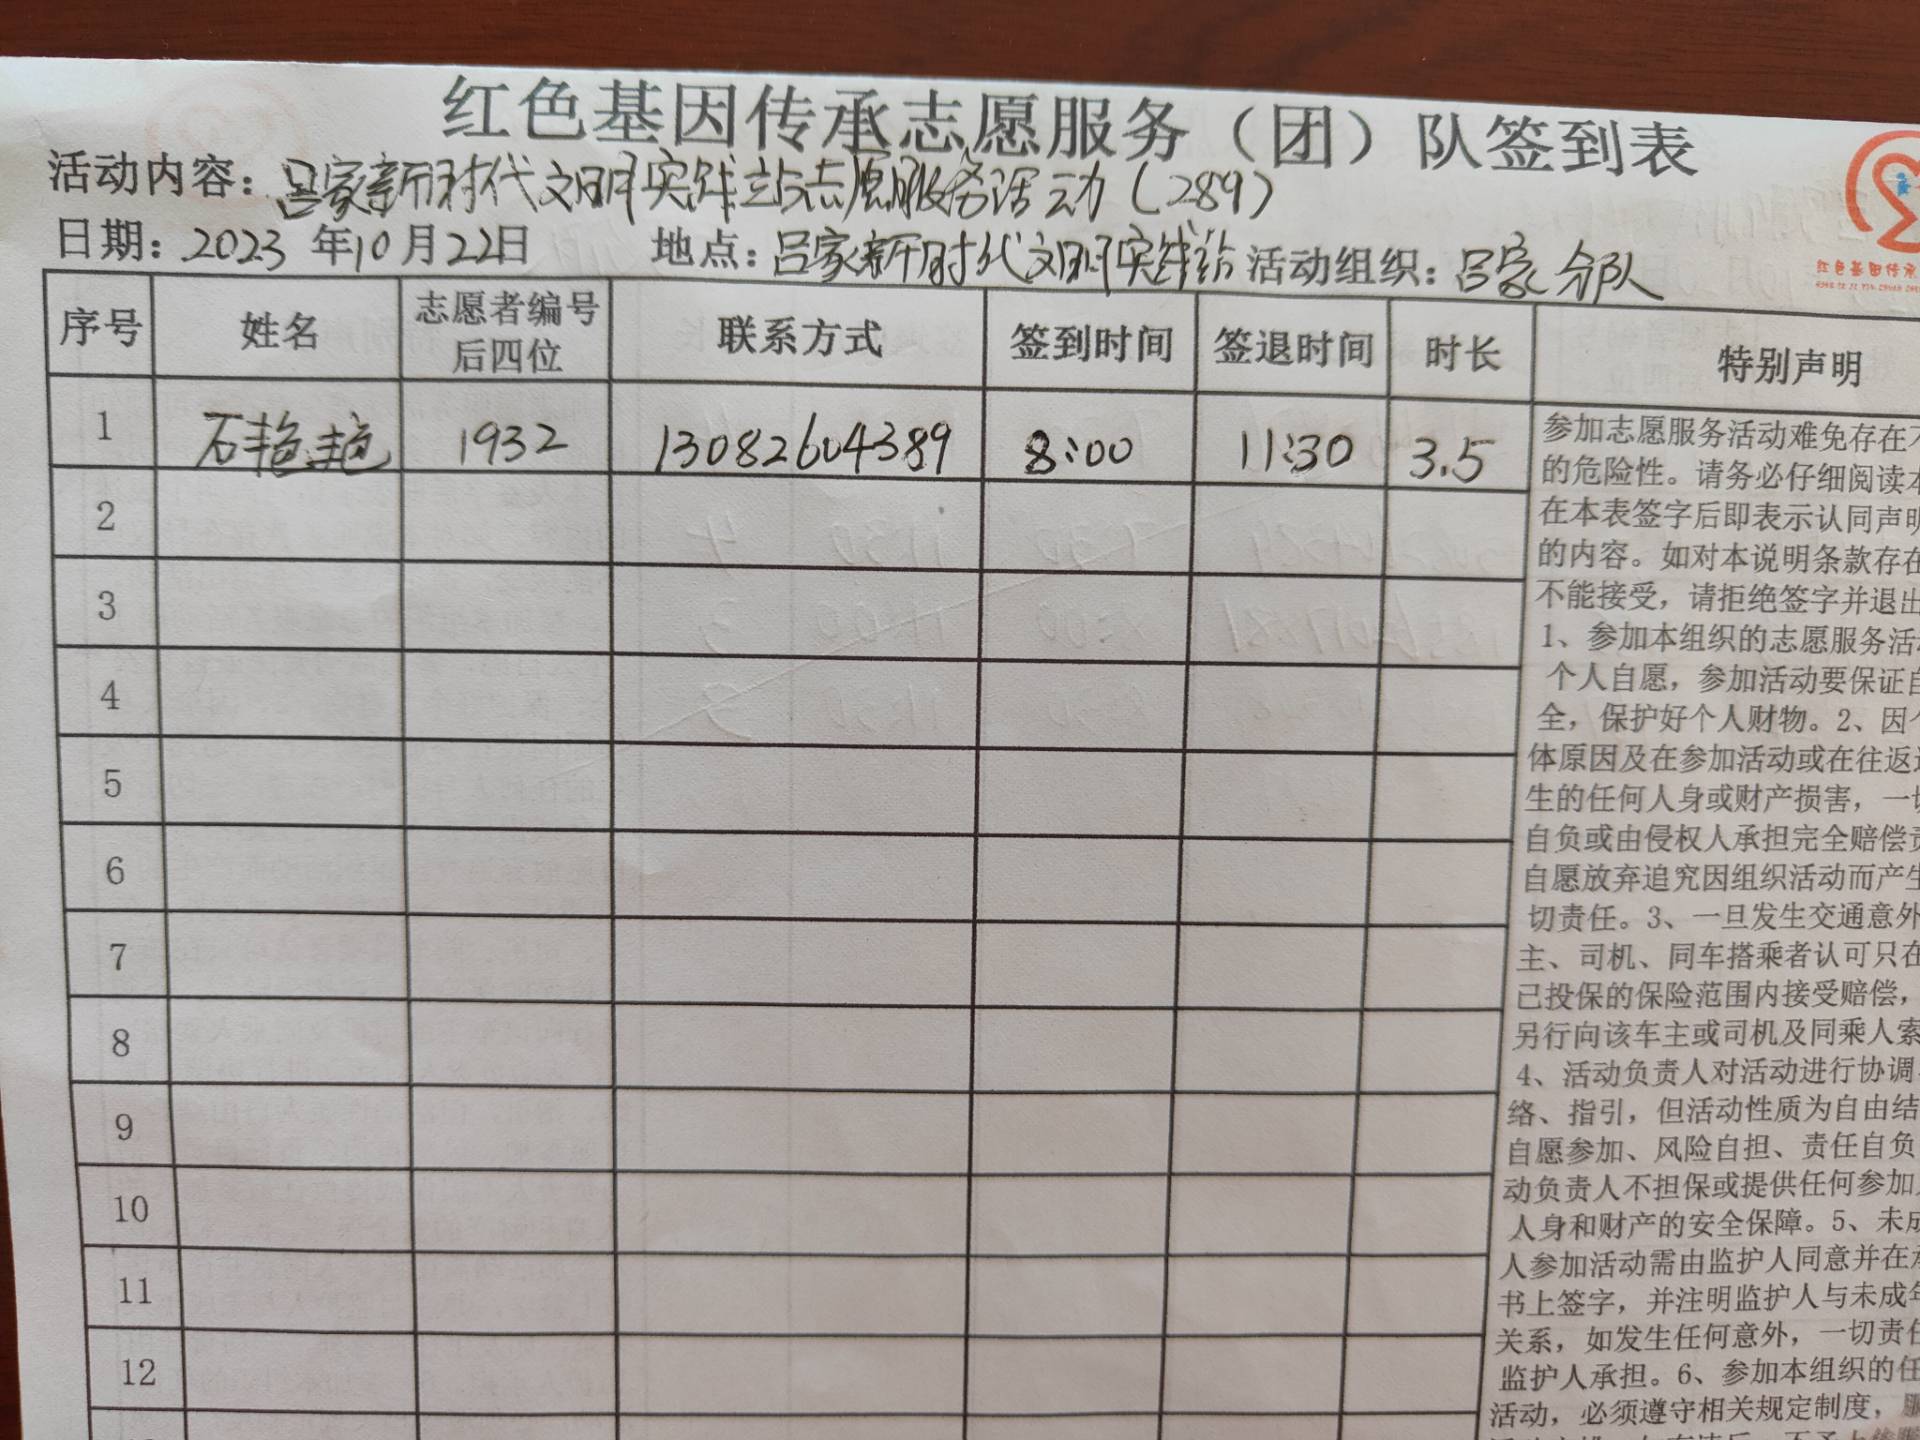 红色基因传承志愿服务（团）队签到表
活动内容：吕家新时代文明实践站志愿服务活动（289）
日期：2023年10月22日 地点：吕家新时代文明实践站 活动组织：吕家分队
序号 姓名 志愿者编号后四位 联系方式 签到时间 签退时间 时长 特别声明
1 石艳艳 1932 13082604389 8:00 11:30 3.5
2
3
4
5
6
7
8
9
10
11
12
参加志愿服务活动难免存在不
的危险性。请务必仔细阅读本
在本表签字后即表示认同声明
的内容。如对本说明条款存在
不能接受，请拒绝签字并退出
1、参加本组织的志愿服务活动
个人自愿，参加活动要保证自
全，保护好个人财物。2、因个
体原因及在参加活动或在往返途
生的任何人身或财产损害，一切
自负或由侵权人承担完全赔偿责
自愿放弃追究因组织活动而产生
切责任。3、一旦发生交通意外
主、司机、同车搭乘者认可只在
已投保的保险范围内接受赔偿，
另行向该车主或司机及同乘人索
4、活动负责人对活动进行协调、
络、指引，但活动性质为自由结
自愿参加、风险自担、责任自负
动负责人不担保或提供任何参加
人身和财产的安全保障。5、未成
人参加活动需由监护人同意并在承
书上签字，并注明监护人与未成年
关系，如发生任何意外，一切责任
监护人承担。6、参加本组织的任
活动，必须遵守相关规定制度，服
红色基因传承